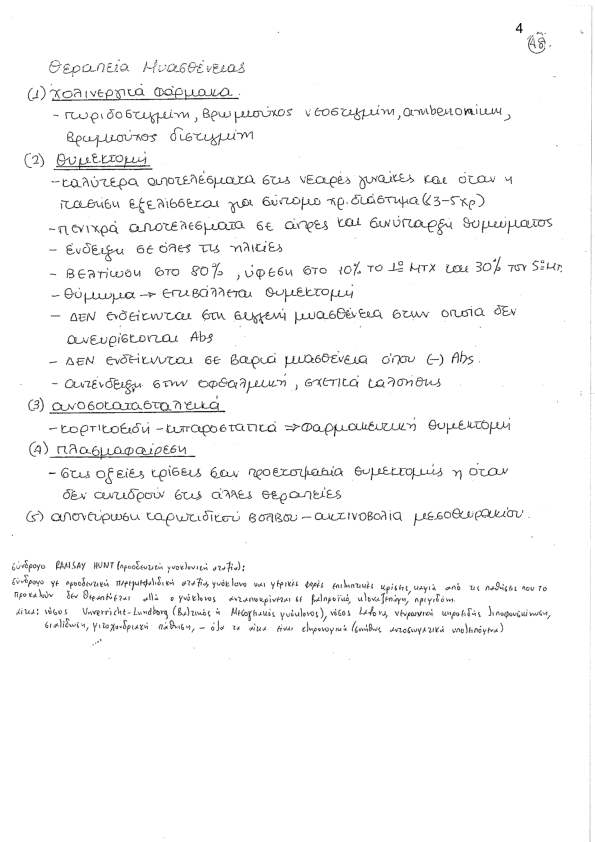 4
Αθ.
Θεραπεία Μυασθένειας
(1) χολινεργικά φάρμακα.
- πυριδοστιγμίνη, βρωμιούχος νεοστιγμίνη, ambenonium,
βρωμιούχος διστιγμίνη
(2) Θυμεκτομή
- καλύτερα αποτελέσματα στις νεαρές γυναίκες και όταν η
πάθηση εξελίσσεται για σύντομο χρ. διάστημα (<3-5χρ)
- πενιχρά αποτελέσματα σε άντρες και συνύπαρξη θυμώματος
- ένδειξη σε όλες τις ηλικίες
- Βελτίωση στο 80%, ύφεση στο 10% το 1ο ΜΤΧ και 30% τον 5ο ΜΤ.
- Θύμωμα → επιβάλλεται θυμεκτομή
- ΔΕΝ ενδείκνυται στη συγγενή μυασθένεια στην οποία δεν
ανευρίσκονται Abs
- ΔΕΝ ενδείκνυται σε βαριά μυασθένεια όπου (-) Abs.
- αντένδειξη στην οφθαλμική, σχετικά καλοήθης
(3) ανοσοκατασταλτικά
- κορτικοειδή - κυτταροστατικά ⇒ φαρμακευτική θυμεκτομή
(4) πλασμαφαίρεση
- στις οξείες κρίσεις σαν προετοιμασία θυμεκτομής ή όταν
δεν αντιδρούν στις άλλες θεραπείες
(5) απονεύρωση καρωτιδικού βολβού - ακτινοβολία μεσοθωρακίου.
σύνδρομο RAMSAY HUNT (προοδευτική μυοκλονική αταξία):
σύνδρομο με προοδευτική παρεγκεφαλιδική αταξία, μυόκλονο και μερικές φορές επιληπτικές κρίσεις, καμία από τις παθήσεις που το
προκαλούν δεν θεραπεύεται αλλά ο μυόκλονος ανταποκρίνεται σε βαλπροϊκό, κλοναζεπάμη, πριμιδόνη.
αίτια: νόσος Unverricht-Lundborg (Βαλτικός ή Μεσογειακός μυόκλονος), νόσος Lafora, νευρωνική κηροειδής λιποφουσκίνωση,
σιαλίδωση, μιτοχονδριακή πάθηση, - όλα τα αίτια είναι κληρονομικά (συνήθως αυτοσωματικά υπολειπόμενα)
....